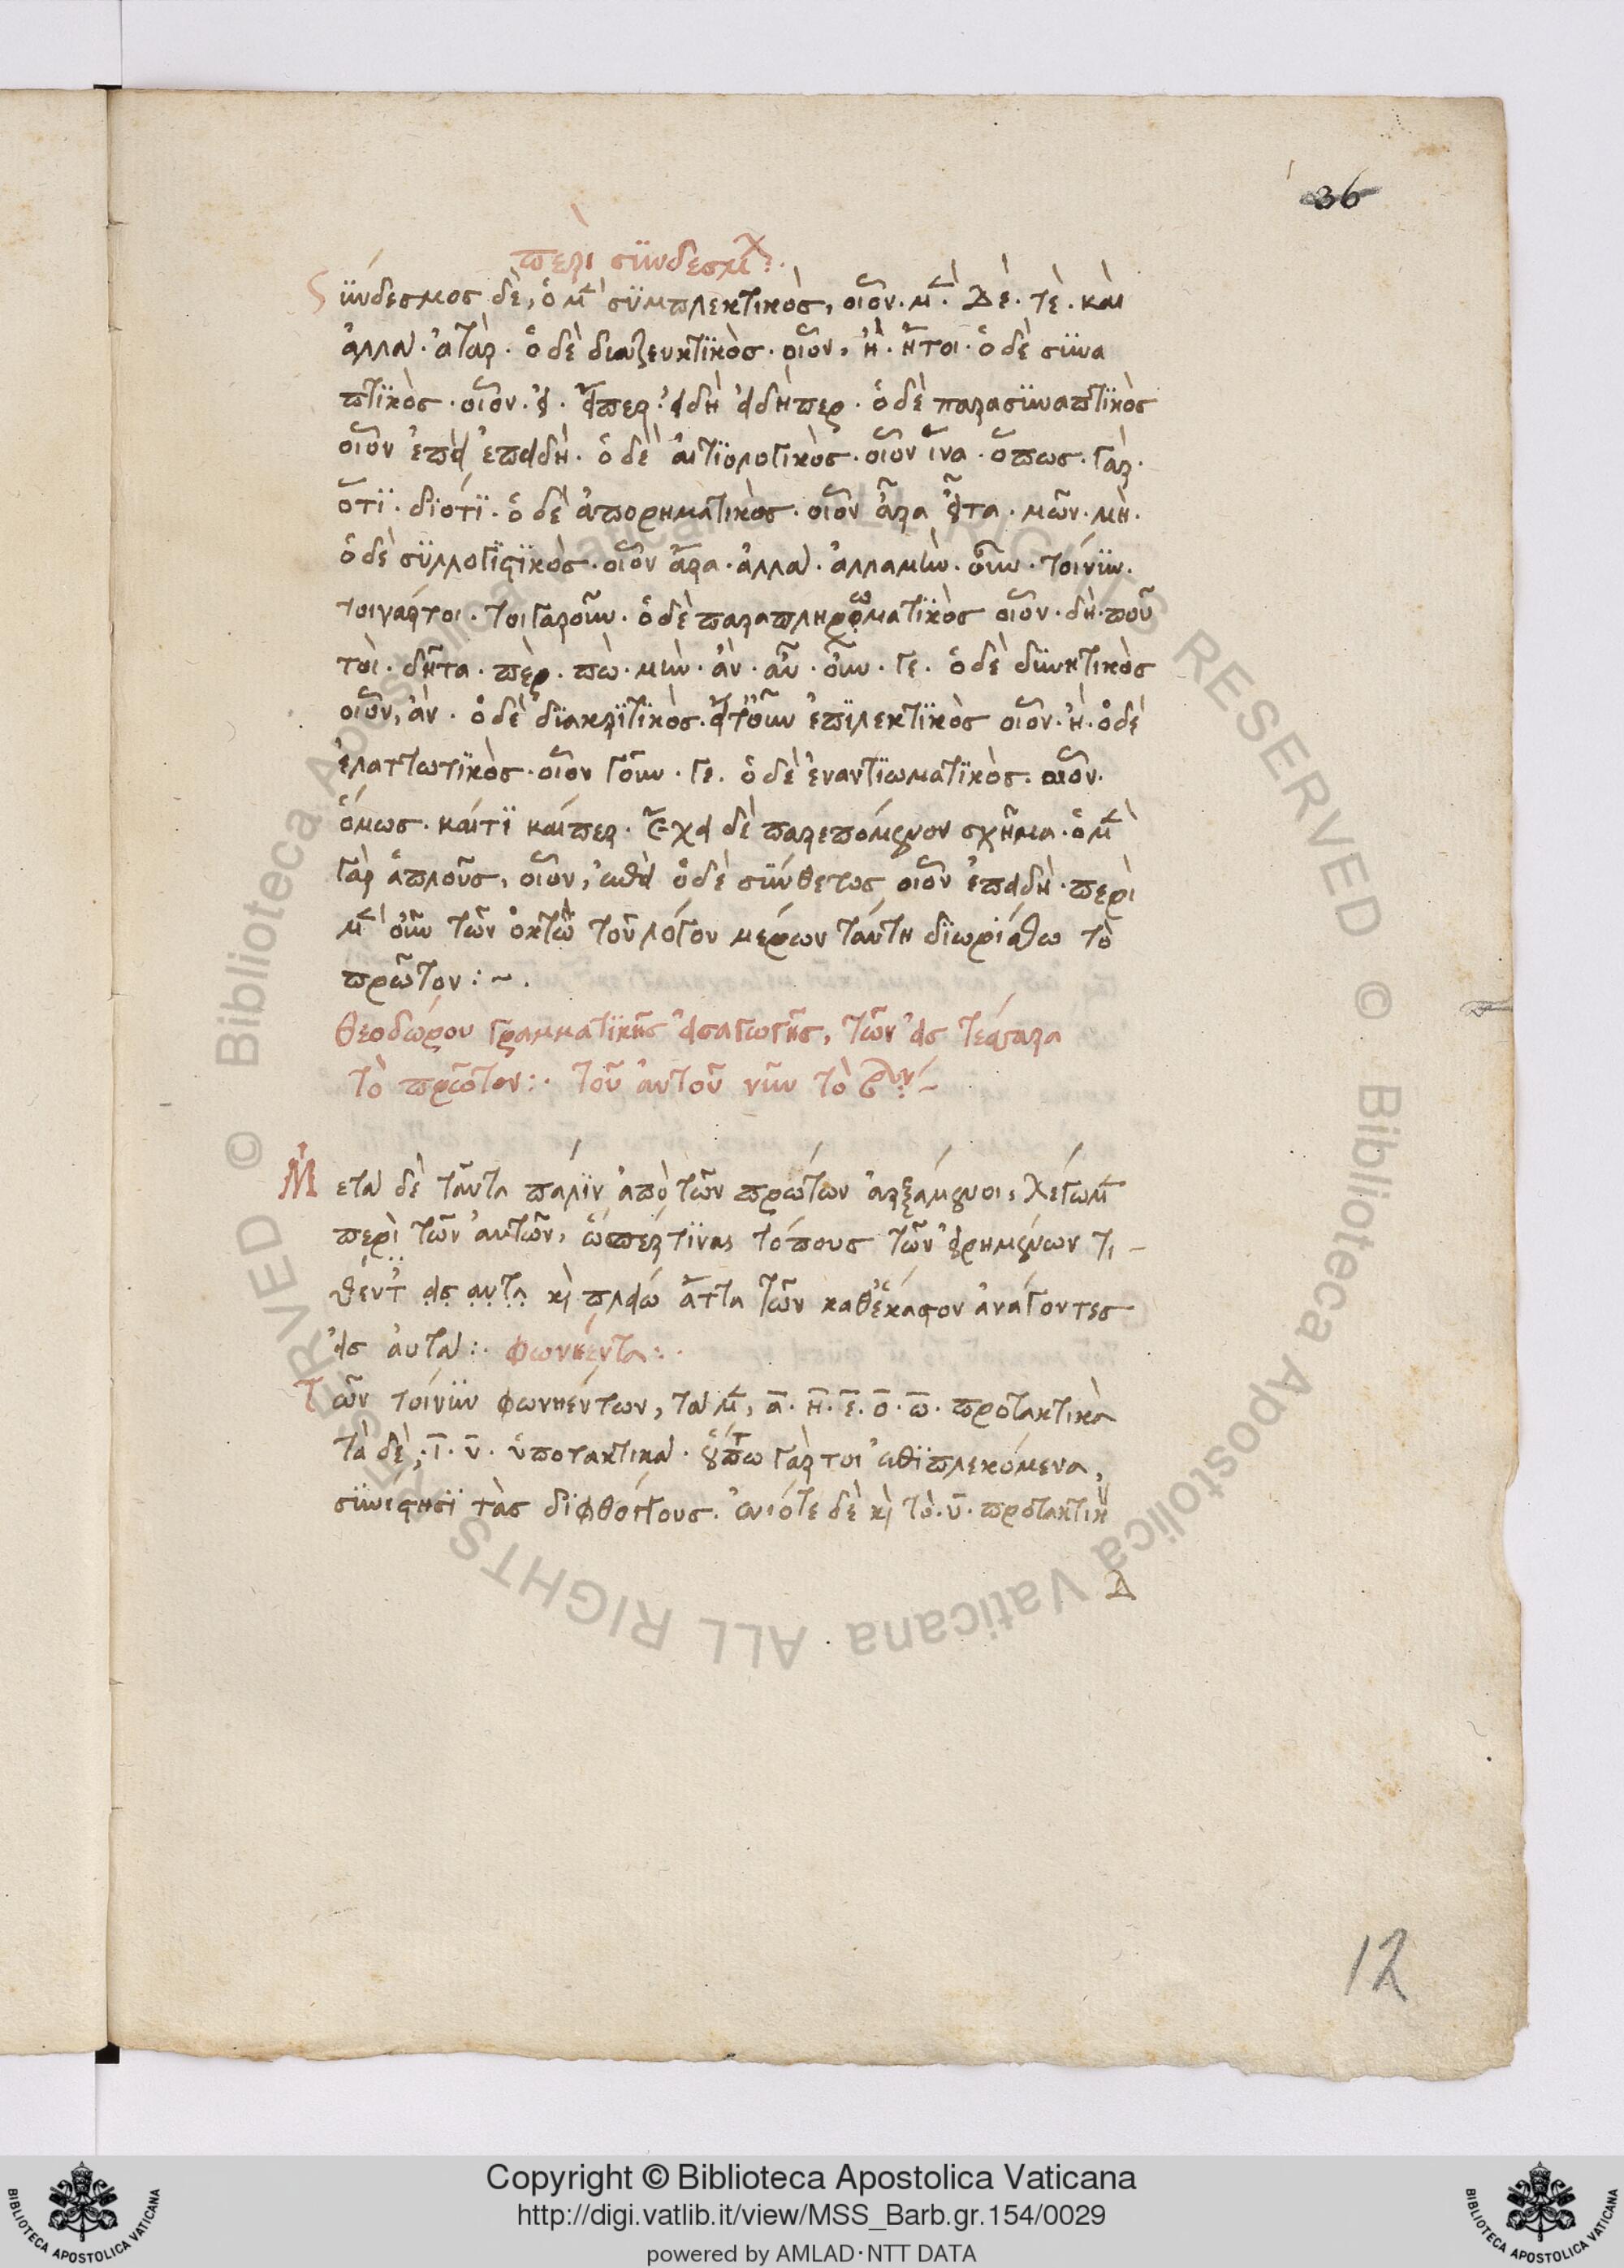 36
περὶ συνδέσμου:·
Σύνδεσμος δὲ, ὁ μὲν συμπλεκτικὸς, οἷον· μέν· δέ· τὲ· καὶ
ἀλλὰ· ἀτὰρ· ὁ δὲ διαζευκτικὸς· οἷον, ἢ· ἤτοι· ὁ δὲ συνα
πτικὸς· οἷον· εἰ· εἴπερ· εἰδὴ εἰδήπερ· ὁ δὲ παρασυναπτικὸς
οἷον ἐπεὶ ἐπειδὴ· ὁ δὲ αἰτιολογικὸς· οἷον ἵνα· ὅπως· γὰρ·
ὅτι· διότι· ὁ δὲ ἀπορηματικὸς· οἷον ἆρα εἶτα· μῶν· μὴ·
ὁ δὲ συλλογιστικὸς· οἷον ἄρα· ἀλλὰ· ἀλλαμὴν· οὖν· τοίνυν·
τοιγάρτοι· τοιγαροῦν· ὁ δὲ παραπληρωματικὸς οἷον· δὴ· ποῦ
τοὶ· δῆτα· πὲρ· πὼ· μὴν· ἂν· αὖ· οὖν· γε· ὁ δὲ δυνητικὸς
οἷον, ἂν· ὁ δὲ διακριτικὸς· εἴτουν ἐπιλεκτικὸς οἷον· ἢ· ὁ δὲ
ἐλαττωτικὸς· οἷον γοῦν· γε· ὁ δὲ ἐναντιωματικὸς· οἷον·
ὅμως· καίτι καίπερ· ἔχει δὲ παρεπόμενον σχῆμα· ὁ μὲν
γὰρ ἁπλοῦς, οἷον, ἐπεὶ ὁ δὲ σύνθετος οἷον ἐπειδὴ· περὶ
μὲν οὖν τῶν ὀκτὼ τοῦ λόγου μερῶν ταύτη διωρίσθω τὸ
πρῶτον:~·
Θεοδώρου γραμματικῆς εἰσαγωγῆς, τῶν εἰς τέσσαρα
τὸ πρῶτον:· τοῦ αὐτοῦ νῦν τὸ
Μετὰ δὲ ταῦτα πάλιν ἀπὸ τῶν πρώτων ἀρξάμενοι, λέγωμεν
περὶ τῶν αὐτῶν, ὥσπερ τινας τόπους τῶν εἰρημένων τι-
θέντες εἰς αυτα καὶ πλείω ἄττα τῶν καθέκαστον ἀνάγοντες
εἰς αὐτὰ:· φωνήεντα:·
Τῶν τοίνυν φωνηέντων, τὰ μὲν, α· η· ε· ο· ω· προτακτικὰ
τὰ δὲ, ι· υ· ὑποτακτικὰ· οὕτω γάρ τοι ἐπιπλεκόμενα,
συνίστησι τὰς διφθόγγους. ἐνιότε δὲ καὶ τὸ· υ· προτακτικὸν
Δ
12
© Biblioteca Apostolica Vaticana ALL RIGHTS RESERVED © Biblioteca Apostolica Vaticana ALL RIGHTS RESERVED
Copyright © Biblioteca Apostolica Vaticana
http://digi.vatlib.it/view/MSS_Barb.gr.154/0029
powered by AMLAD·NTT DATA
BIBLIOTECA APOSTOLICA VATICANA
BIBLIOTECA APOSTOLICA VATICANA